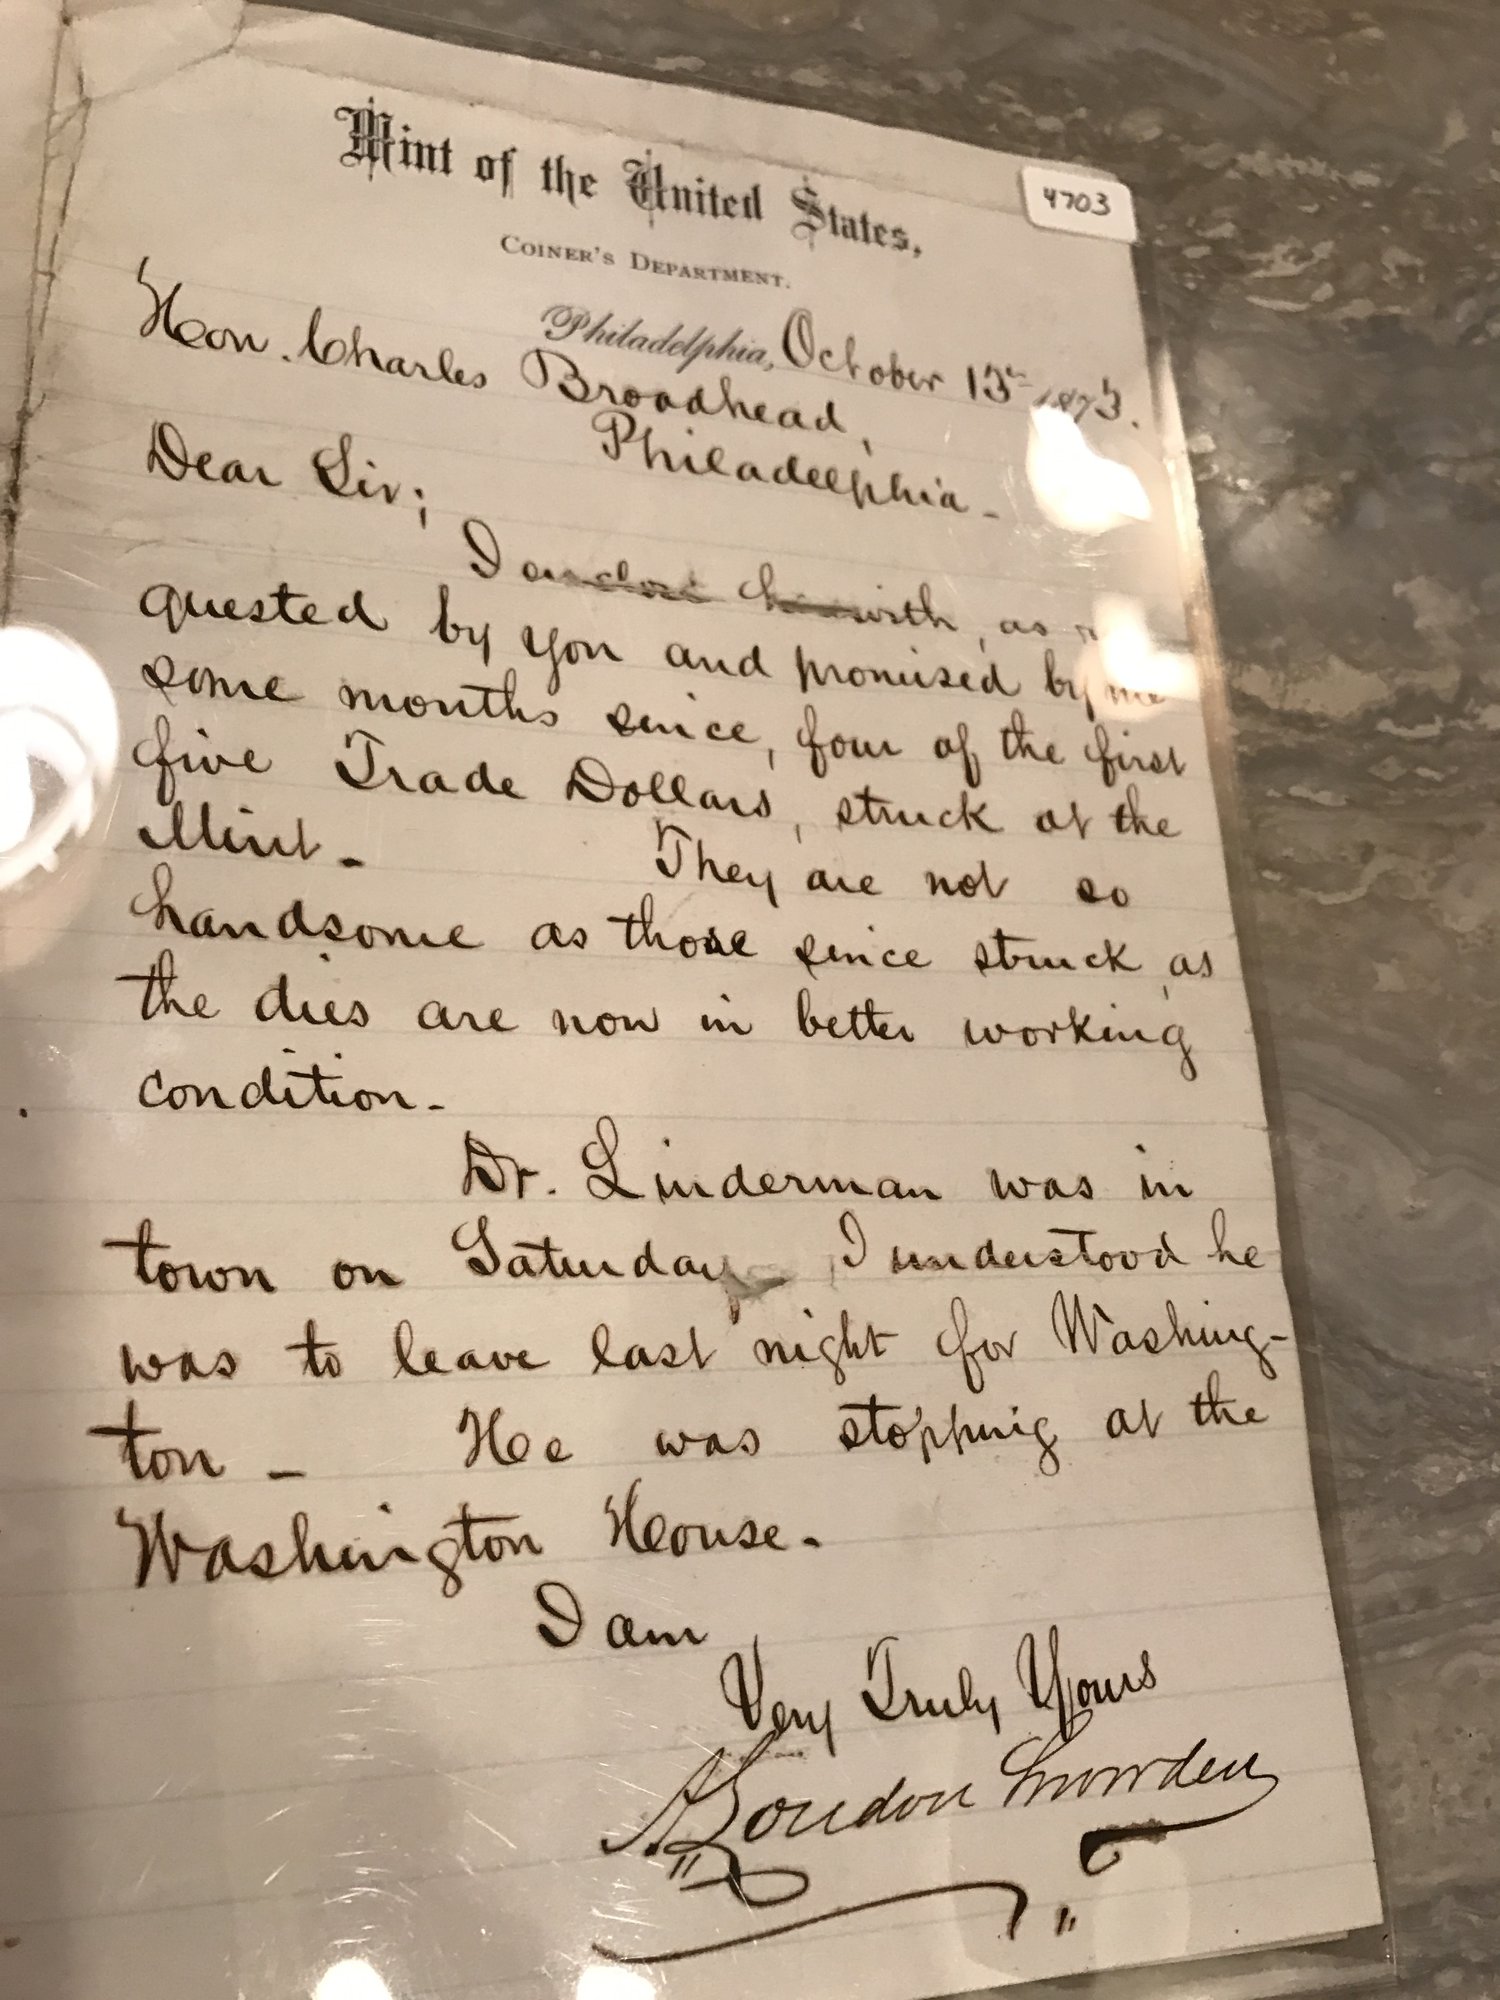 Mint of the United States,
4703
COINER'S DEPARTMENT.
Philadelphia, October 13th 1873.
Hon. Charles Broadhead,
Philadelphia -
Dear Sir;
I enclose herewith, as
quested by you and promised by me
some months since, four of the first
five Trade Dollars, struck at the
Mint - They are not so
handsome as those since struck, as
the dies are now in better working
condition -
Dr. Linderman was in
town on Saturday I understood he
was to leave last night for Washing-
ton - He was stopping at the
Washington House -
I am
Very Truly Yours
A Loudon Snowden